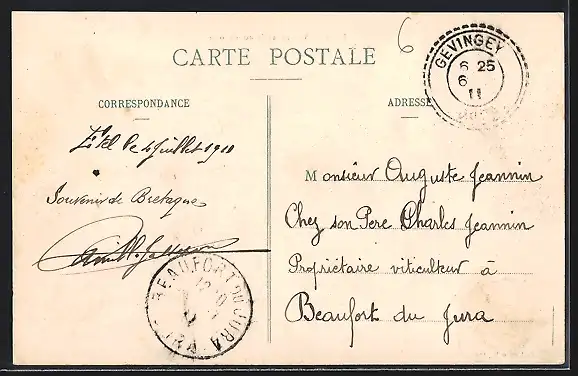 CARTE POSTALE
6
CORRESPONDANCE
ADRESSE
GEVINGEY
6 25
6
11
Etel le 4 Juillet 1911
Souvenir de Bretagne
Monsieur Auguste Jeannin
Chez son Pere Charles Jeannin
Propriétaire viticulteur à
Beaufort du Jura
BEAUFORT DU JURA